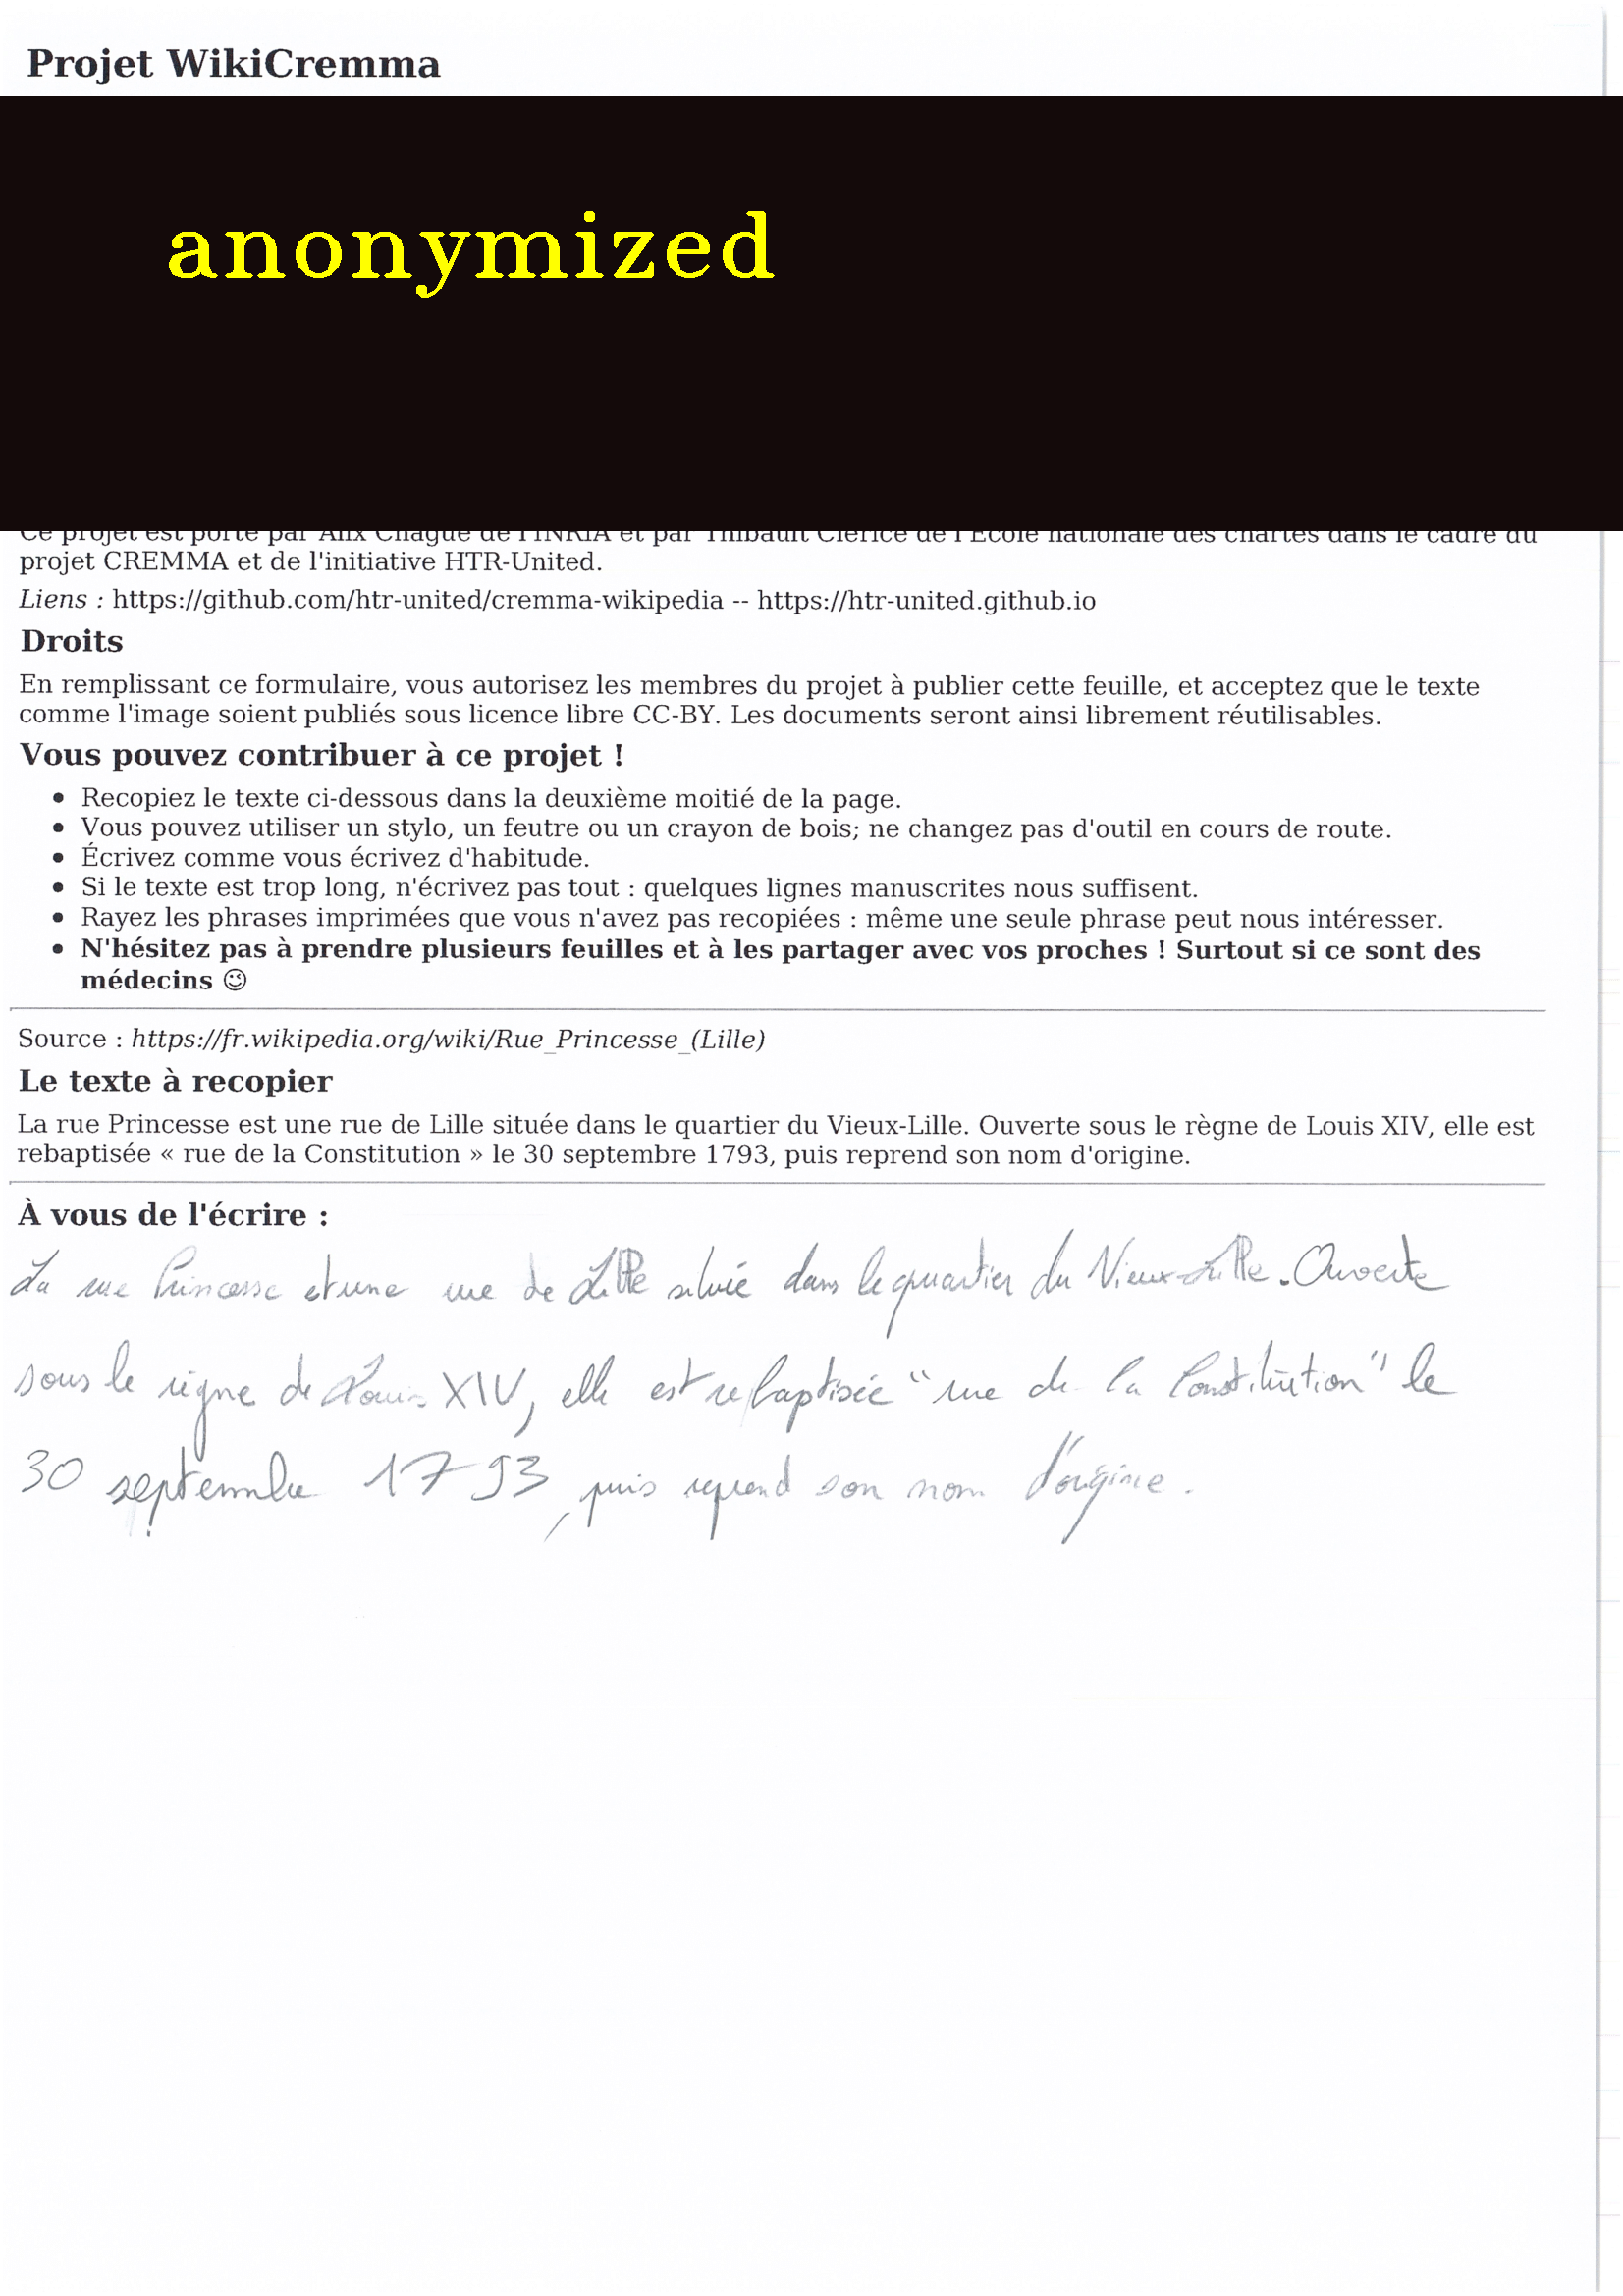 Projet WikiCremma
anonymized
Ce projet est porté par Alix Chagué de l'INRIA et par Thibault Clérice de l'École nationale des chartes dans le cadre du
projet CREMMA et de l'initiative HTR-United.
Liens : https://github.com/htr-united/cremma-wikipedia -- https://htr-united.github.io
Droits
En remplissant ce formulaire, vous autorisez les membres du projet à publier cette feuille, et acceptez que le texte
comme l'image soient publiés sous licence libre CC-BY. Les documents seront ainsi librement réutilisables.
Vous pouvez contribuer à ce projet !
• Recopiez le texte ci-dessous dans la deuxième moitié de la page.
• Vous pouvez utiliser un stylo, un feutre ou un crayon de bois; ne changez pas d'outil en cours de route.
• Écrivez comme vous écrivez d'habitude.
• Si le texte est trop long, n'écrivez pas tout : quelques lignes manuscrites nous suffisent.
• Rayez les phrases imprimées que vous n'avez pas recopiées : même une seule phrase peut nous intéresser.
• N'hésitez pas à prendre plusieurs feuilles et à les partager avec vos proches ! Surtout si ce sont des
médecins 😉
Source : https://fr.wikipedia.org/wiki/Rue_Princesse_(Lille)
Le texte à recopier
La rue Princesse est une rue de Lille située dans le quartier du Vieux-Lille. Ouverte sous le règne de Louis XIV, elle est
rebaptisée « rue de la Constitution » le 30 septembre 1793, puis reprend son nom d'origine.
À vous de l'écrire :
La rue Princesse et une rue de Lille située dans le quartier du Vieux-Lille. Ouverte
sous le règne de Louis XIV, elle est rebaptisée "rue de la Constitution" le
30 septembre 1793, puis reprend son nom d'origine.